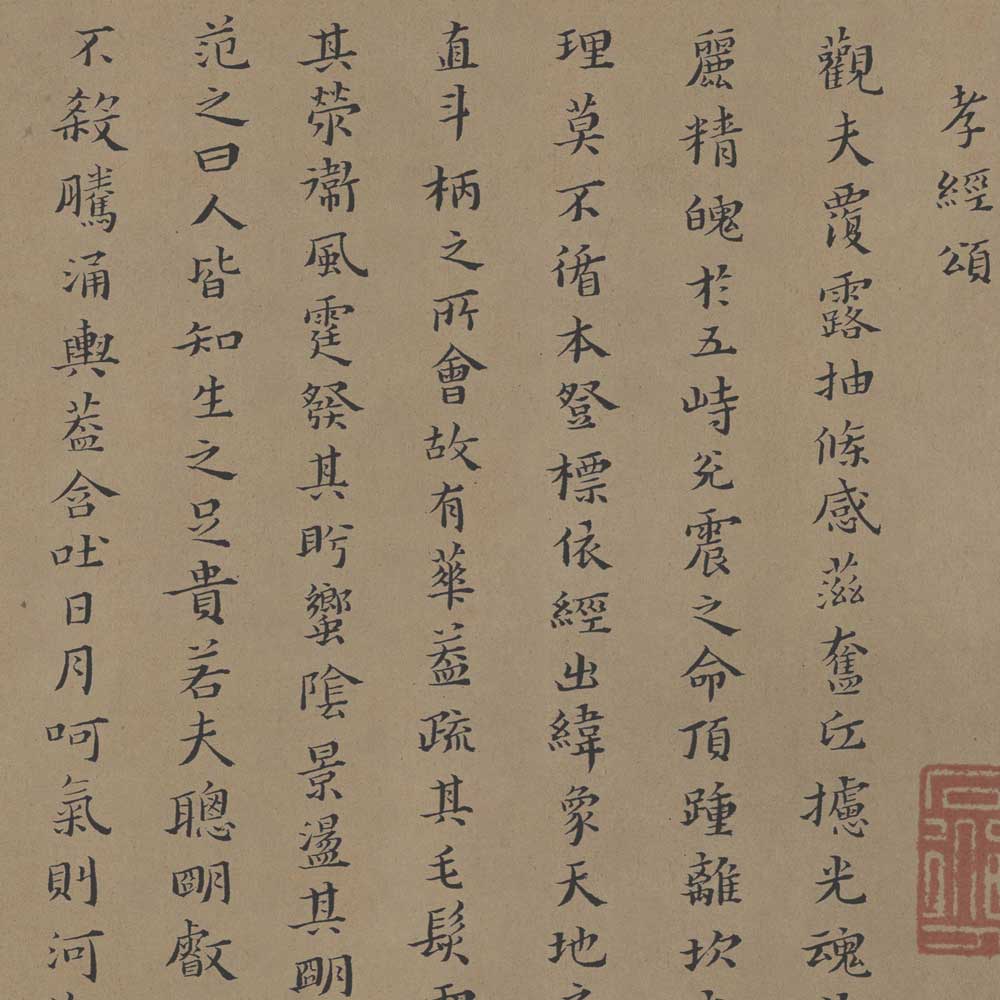 孝經頌
觀夫覆露抽條感滋奮丘攄光魂
麗精魄於五峙兊震之命頂踵離坎
理莫不循本登標依經出緯象天地
直斗柄之所會故有華蓋疏其毛髮
其滎衛風霆發其肸蠁陰景盪其明
范之曰人皆知生之足貴若夫聰明叡
不殺騰涌輿蓋含吐日月呵氣則河